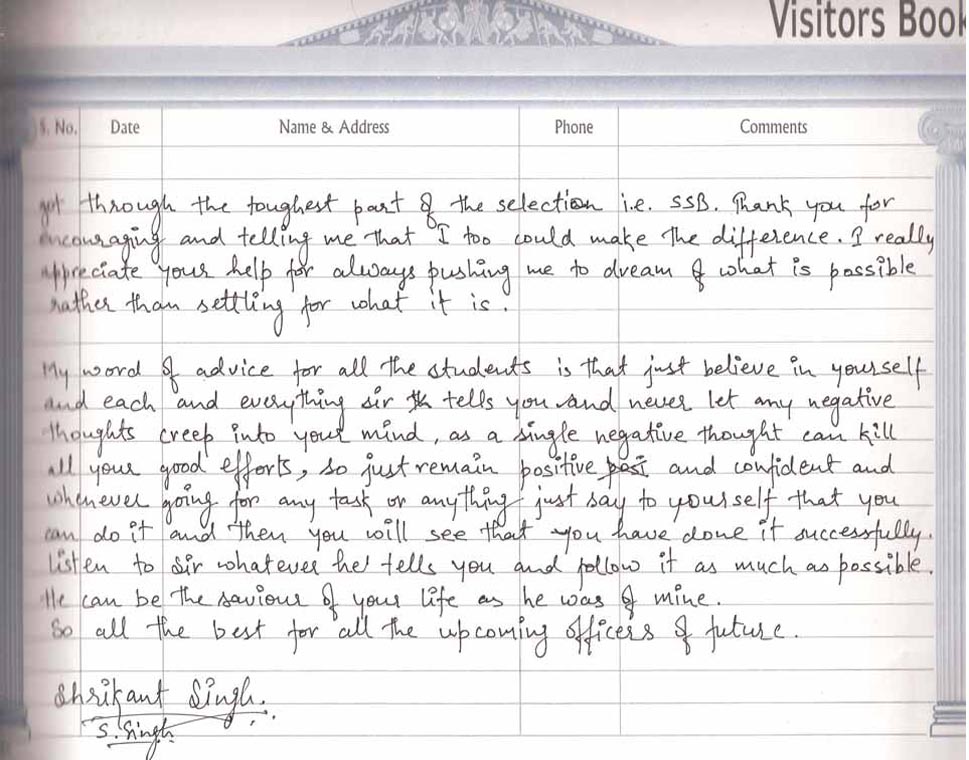 Visitors Book
S. No. Date Name & Address Phone Comments
got through the toughest part of the selection i.e. SSB. Thank you for
encouraging and telling me that I too could make the difference. I really
appreciate your help for always pushing me to dream of what is possible
rather than settling for what it is.
My word of advice for all the students is that just believe in yourself
and each and everything sir tells you and never let any negative
thoughts creep into your mind, as a single negative thought can kill
all your good efforts, so just remain positive and confident and
whenever going for any task or anything just say to yourself that you
can do it and then you will see that you have done it successfully.
Listen to Sir whatever he tells you and follow it as much as possible.
He can be the saviour of your life as he was of mine.
So all the best for all the upcoming officers of future.
Shrikant Singh.
S. Singh